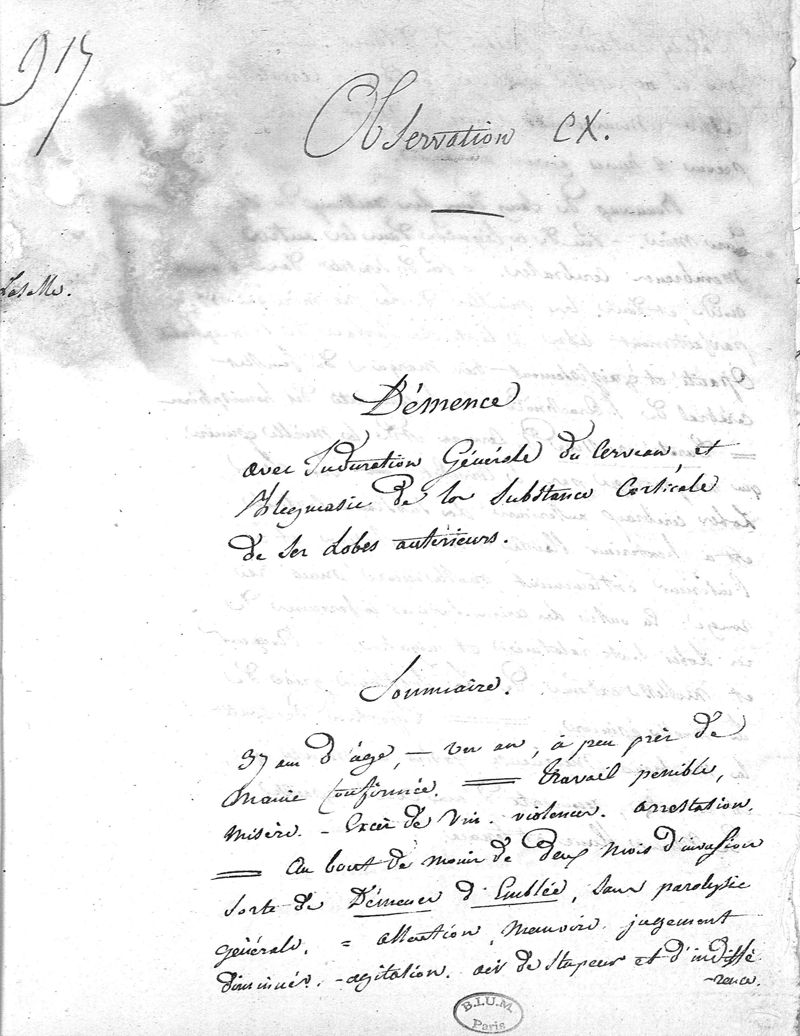 917
Observation CX.
Lasalle.
Démence
avec Induration Générale du Cerveau, et
Phlegmasie de la Substance Corticale
de ses Lobes antérieurs.
Sommaire.
37 ans d'âge, — un an, à peu près de
Manie Confirmée. = travail penible,
misère. - Excès de Vin. violences. arrestation.
= Au bout de moins de deux mois d'invasion
sorte de Démence d'Emblée, sans paralysie
générale. = attention, Mémoire, jugement
diminués. - agitation. air de stupeur et d'indiffé
-rence.
B.I.U.M.
Paris